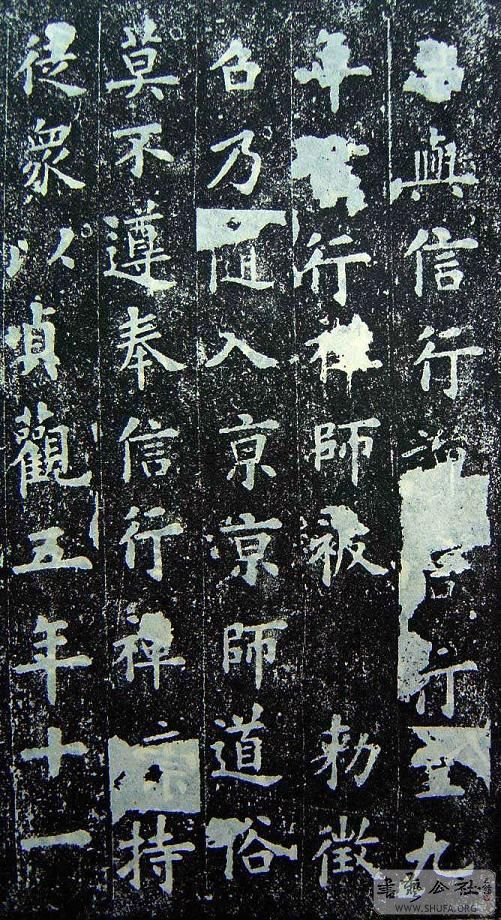 與信行行九
年行禪師被勅徵
召乃入京京師道俗
莫不遵奉信行禪持
徒眾以貞觀五年十一
書藝公社
WWW.SHUFA.ORG